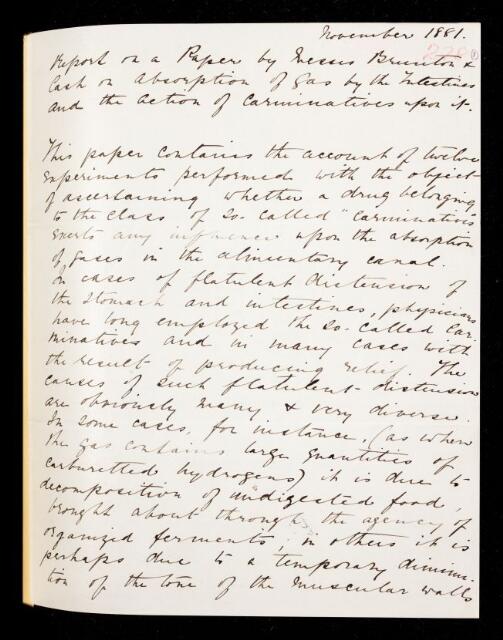 November 1881.
Report on a Paper by Messrs Brunton &
Cash on Absorption of Gas by the Intestines
and the Action of Carminatives upon it.
This paper contains the account of twelve
experiments performed with the object
of ascertaining whether a drug belonging
to the class of so-called "Carminatives"
exerts any influence upon the absorption
of gases in the alimentary canal.
In cases of flatulent distension of
the stomach and intestines, physicians
have long employed the so-called Car-
minatives and in many cases with
the result of producing relief. The
causes of such flatulent distension
are obviously many & very diverse.
In some cases, for instance, (as where
the gas contains large quantities of
carburetted hydrogens) it is due to
decomposition of undigested food,
brought about through the agency of
organized ferments; in others it is
perhaps due to a temporary diminu-
tion of the tone of the muscular walls